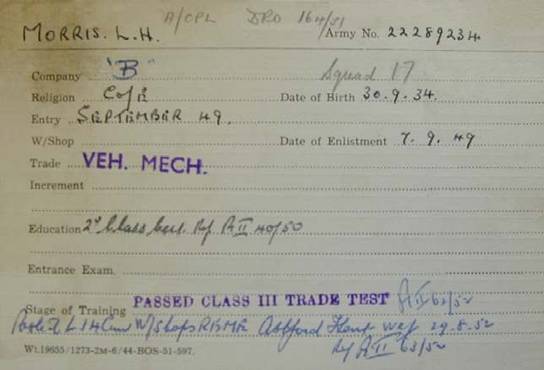 MORRIS. L.H. A/CPL DRO 164/51 Army No. 22289234
Company "B" Squad 17
Religion C of E Date of Birth 30.9.34.
Entry SEPTEMBER 49.
W/Shop Date of Enlistment 7.9.49
Trade VEH. MECH.
Increment
Education 2nd Class Cert. Ref A II 40/50
Entrance Exam.
Stage of Training PASSED CLASS III TRADE TEST A II 62/52
Posted W/Shops REME Ashford Kent wef 29.8.52
Ref A II 63/52
Wt.19655/1273-2M-6/44-BOS-51-597.